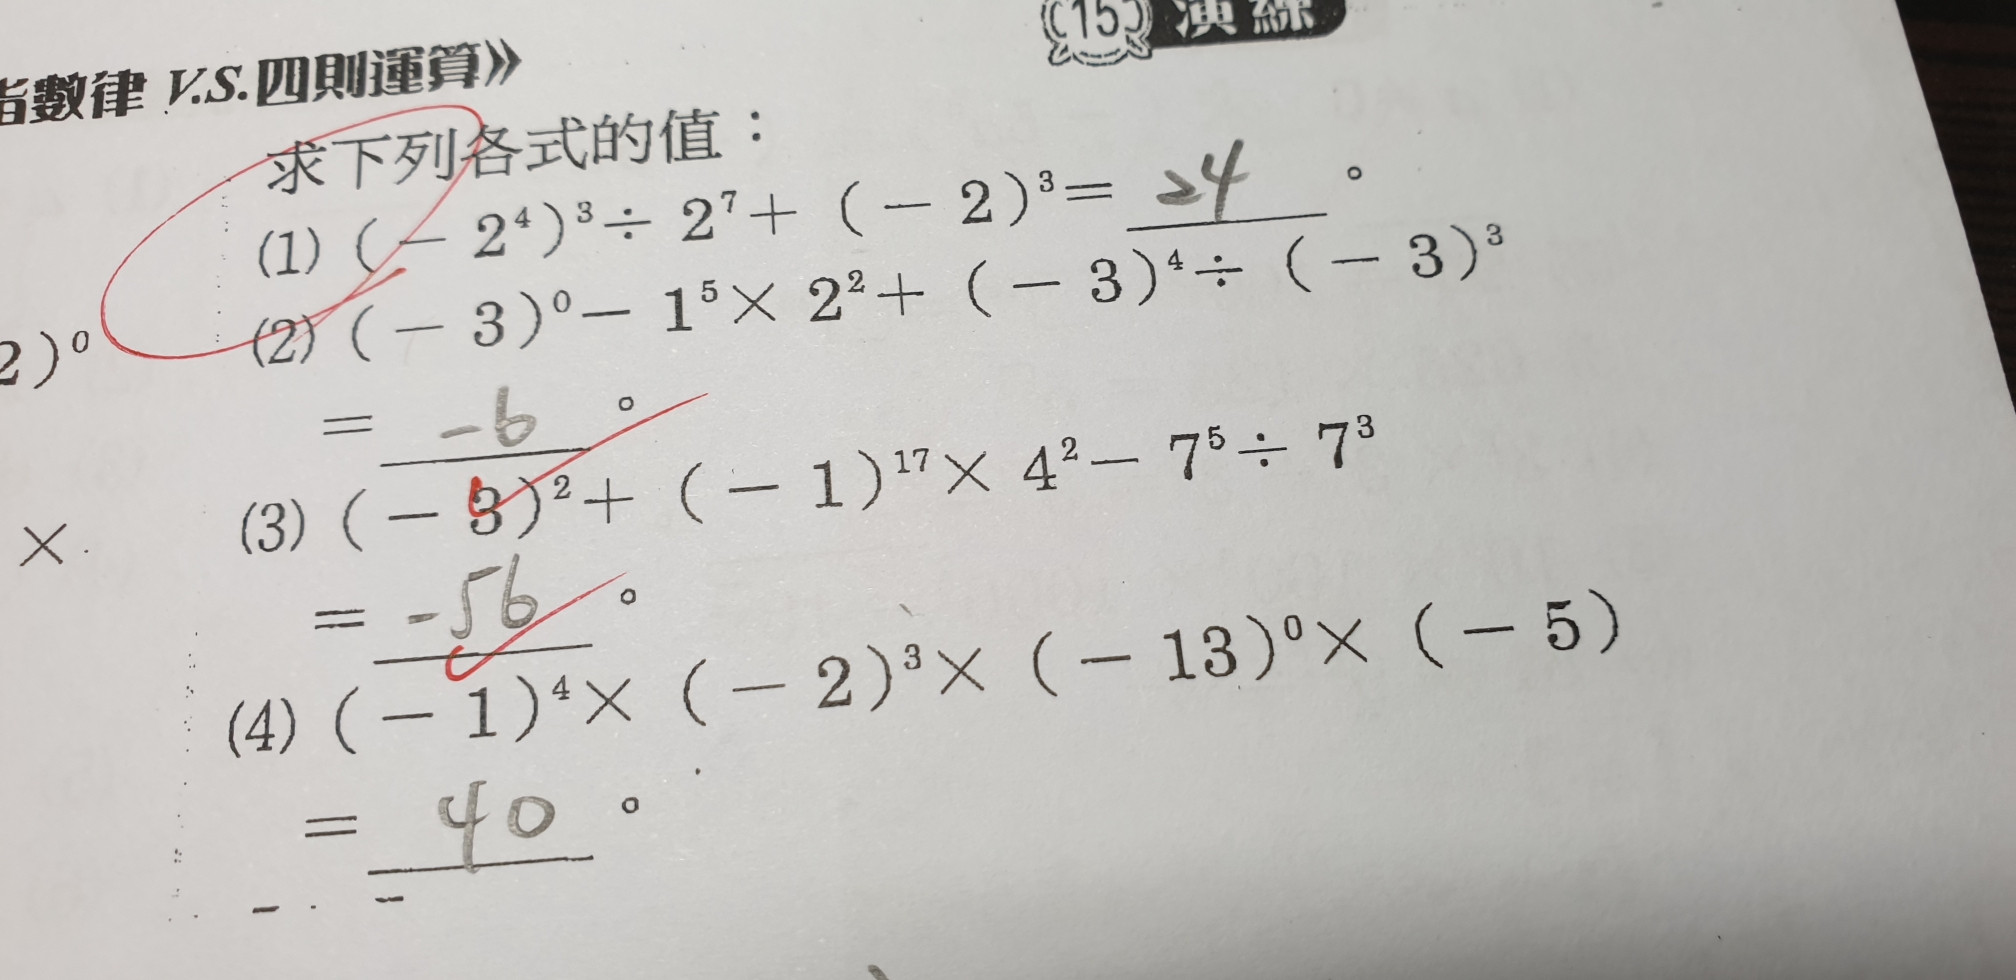 演練 15
指數律 V.S.四則運算》
求下列各式的值：
(1) (－2⁴)³÷2⁷＋(－2)³＝ 24 。
(2) (－3)⁰－1⁵×2²＋(－3)⁴÷(－3)³
2)⁰
＝ -6 。
(3) (－3)²＋(－1)¹⁷×4²－7⁵÷7³
×
＝ -56 。
(4) (－1)⁴×(－2)³×(－13)⁰×(－5)
＝ 40 。